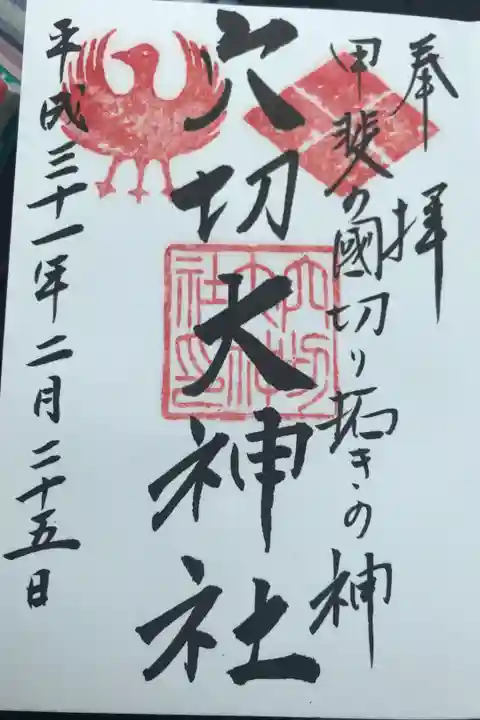 奉拝
甲斐の國切り拓きの神
穴切大神社
穴切大神社印
平成三十一年二月二十五日